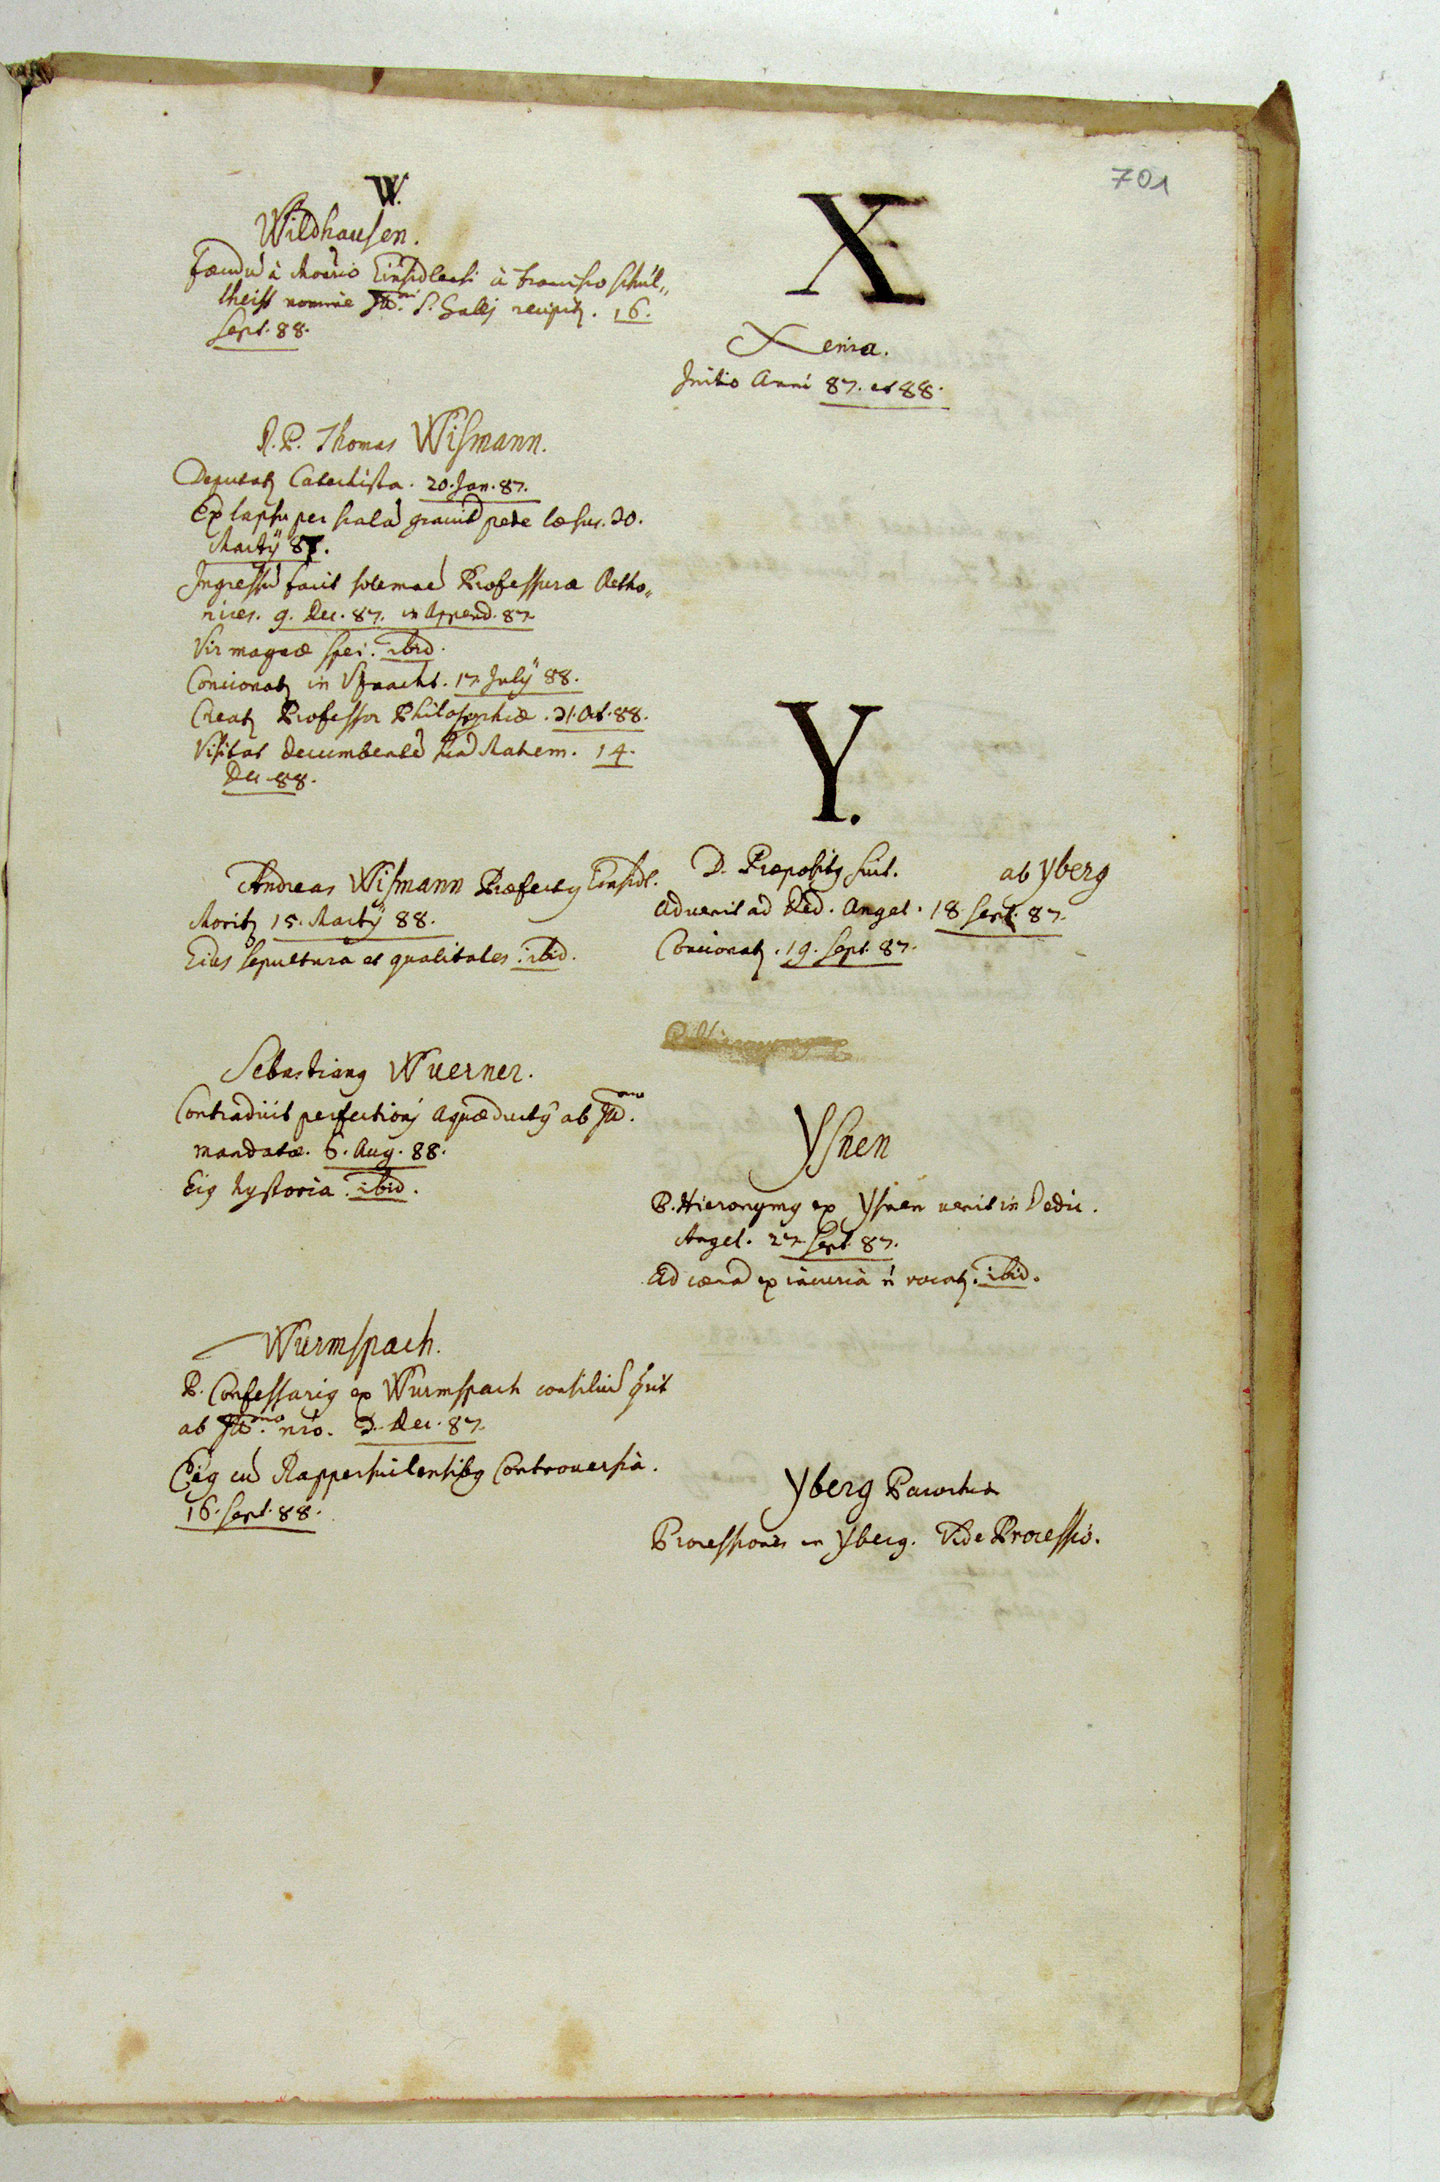 701
W.
Wildhausen.
fœudū à Mōrio Einsidlensi à Francisco Schul-
theiss nomine P. S. Galli recipitʒ. 16.
Sept. 88.
R. P. Thomas Wismann.
Deputatʒ Catechista. 20. Jan. 87.
Ex lapsu per scalā gravit pede læsus. 30.
Martÿ 87.
Ingressū facit solemnē Professuræ Retho-
rices. 9. Dec. 87. in Append. 87.
Vir magnæ spei. ibid.
Concionatʒ in Vznacht. 17. Julÿ 88.
Creatʒ Professor Philosophiæ. 31. Oct. 88.
Visitat decumbentē suā Matrem. 14.
Dec. 88.
Andreas Wismann Præfectʒ Einsidl.
Moritʒ 15. Martÿ 88.
Eius sepultura et qualitates. ibid.
Sebastianʒ Wuerner.
Contradicit perfectionj aquæductʒ ab
mandatæ. 6. Aug. 88.
Eiʒ hystoria. ibid.
Wurmspach.
P. Confessariʒ ex Wurmspach consiliū
ab nrō. 3. Dec. 87.
Eiʒ cū Rapperswilensibʒ Controversia.
16. Sept. 88.
X
Xenia.
Initio Anni 87. et 88.
Y.
D. Præpositʒ ab Yberg
Advenit ad Ded. Angel. 18. Sept. 87.
Concionatʒ. 19. Sept. 87.
Ysnen
P. Hieronymʒ ex Ysnen venit in Dedic.
Angel. 27. Sept. 87.
Ad cœnā ex incuria n̄ vocatʒ. ibid.
Yberg Parochia
Processiones in Yberg. Vide Processio.